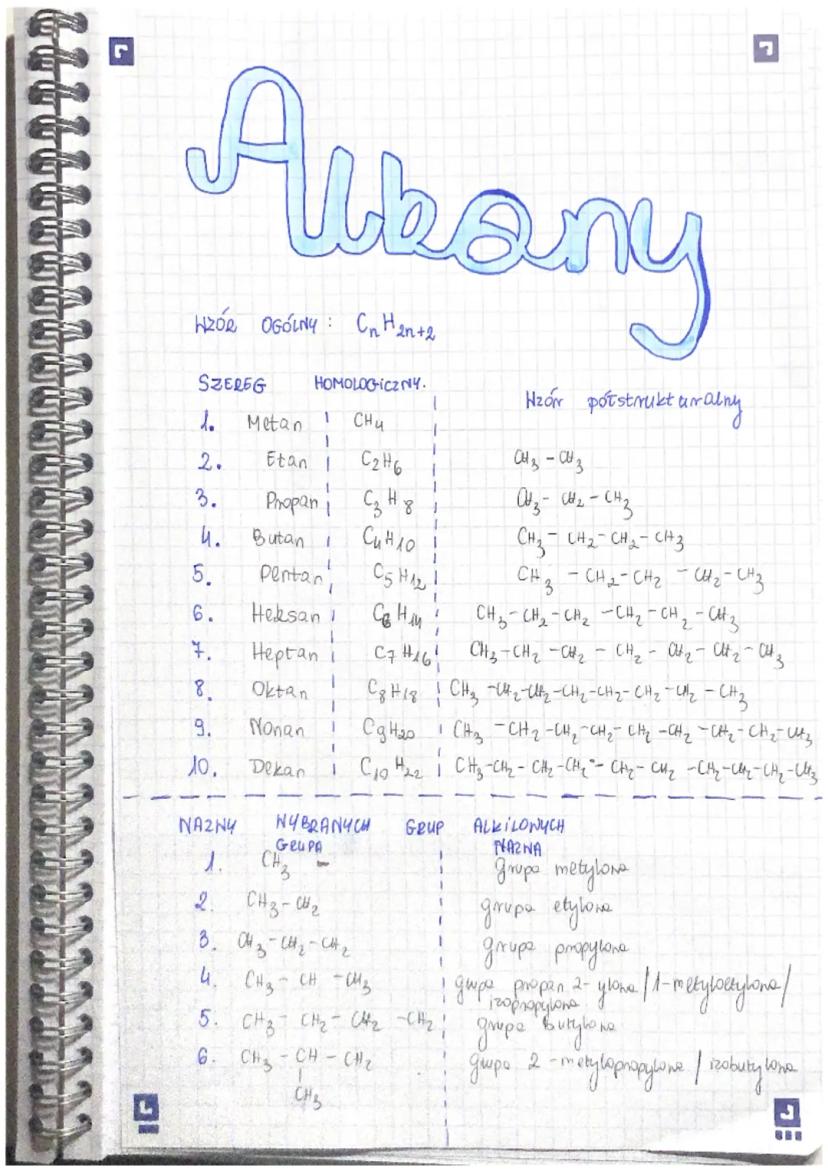 Alkany
WZÓR OGÓLNY: CnH2n+2
SZEREG HOMOLOGICZNY.
Wzór półstrukturalny
1. Metan CH4
2. Etan C2H6 CH3-CH3
3. Propan C3H8 CH3-CH2-CH3
4. Butan C4H10 CH3-CH2-CH2-CH3
5. Pentan C5H12 CH3-CH2-CH2-CH2-CH3
6. Heksan C6H14 CH3-CH2-CH2-CH2-CH2-CH3
7. Heptan C7H16 CH3-CH2-CH2-CH2-CH2-CH2-CH3
8. Oktan C8H18 CH3-CH2-CH2-CH2-CH2-CH2-CH2-CH3
9. Nonan C9H20 CH3-CH2-CH2-CH2-CH2-CH2-CH2-CH2-CH3
10. Dekan C10H22 CH3-CH2-CH2-CH2-CH2-CH2-CH2-CH2-CH2-CH3
NAZWY WYBRANYCH GRUP ALKILOWYCH
GRUPA NAZWA
1. CH3- grupa metylowa
2. CH3-CH2 grupa etylowa
3. CH3-CH2-CH2 grupa propylowa
4. CH3-CH-CH3 grupa propan 2-ylowa/1-metyloetylowa/
izopropylowa
5. CH3-CH2-CH2-CH2 grupa butylowa
6. CH3-CH-CH2 grupa 2-metylopropylowa/izobutylowa
CH3